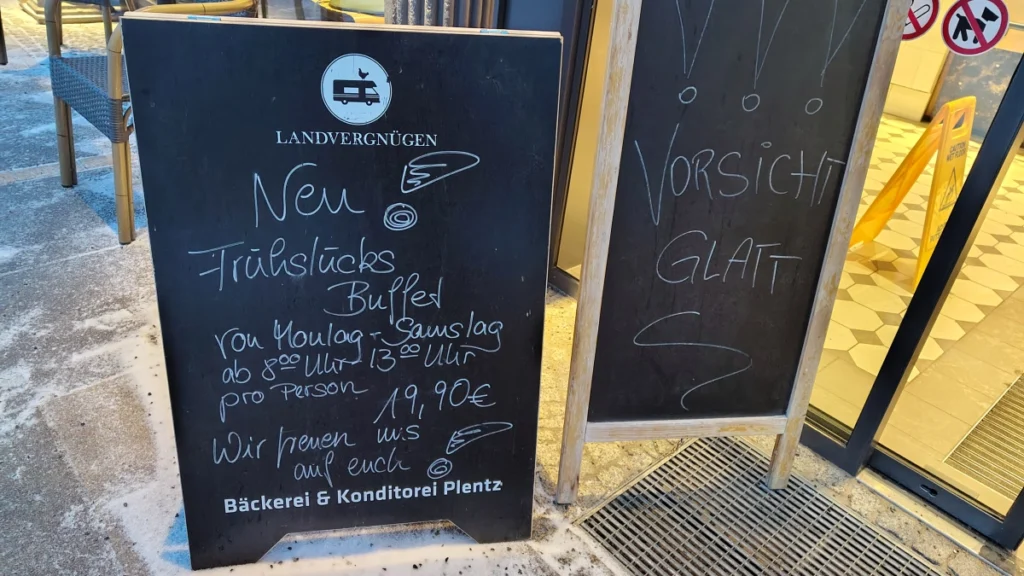 LANDVERGNÜGEN
Neu!
Frühstücks
Buffet
von Montag - Samstag
ab 8⁰⁰ Uhr - 13⁰⁰ Uhr
pro Person 19,90€
Wir freuen uns
auf euch!
Bäckerei & Konditorei Plentz
!!!
VORSICHT
GLATT